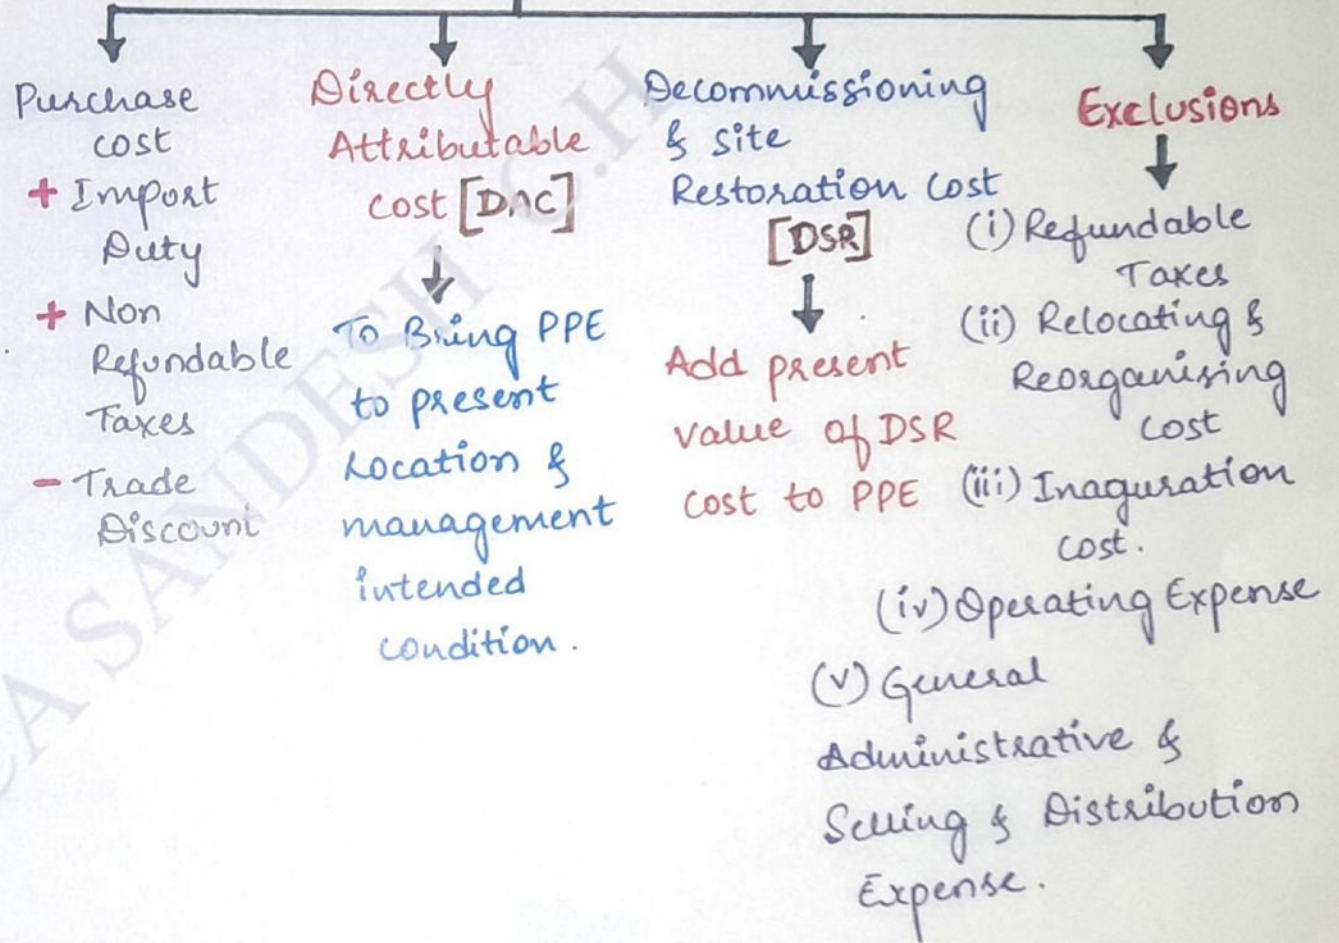 Purchase
cost
+ Import
Duty
+ Non
Refundable
Taxes
- Trade
Discount
Directly
Attributable
cost [DAC]
To Bring PPE
to present
Location &
management
intended
condition.
Decommissioning
& site
Restoration cost
[DSR]
Add present
value of DSR
cost to PPE
Exclusions
(i) Refundable
Taxes
(ii) Relocating &
Reorganising
cost
(iii) Inaguration
cost.
(iv) Operating Expense
(v) General
Administrative &
Selling & Distribution
Expense.
CA SANDESH C.H